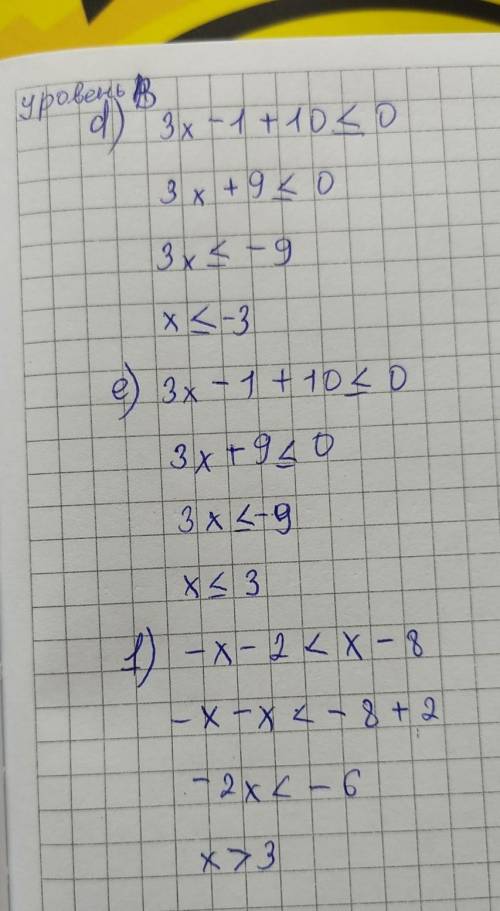 уровень B
d) 3x - 1 + 10 ≤ 0
3x + 9 ≤ 0
3x ≤ -9
x ≤ -3
e) 3x - 1 + 10 ≤ 0
3x + 9 ≤ 0
3x ≤ -9
x ≤ 3
f) -x - 2 < x - 8
-x - x < -8 + 2
-2x < -6
x > 3